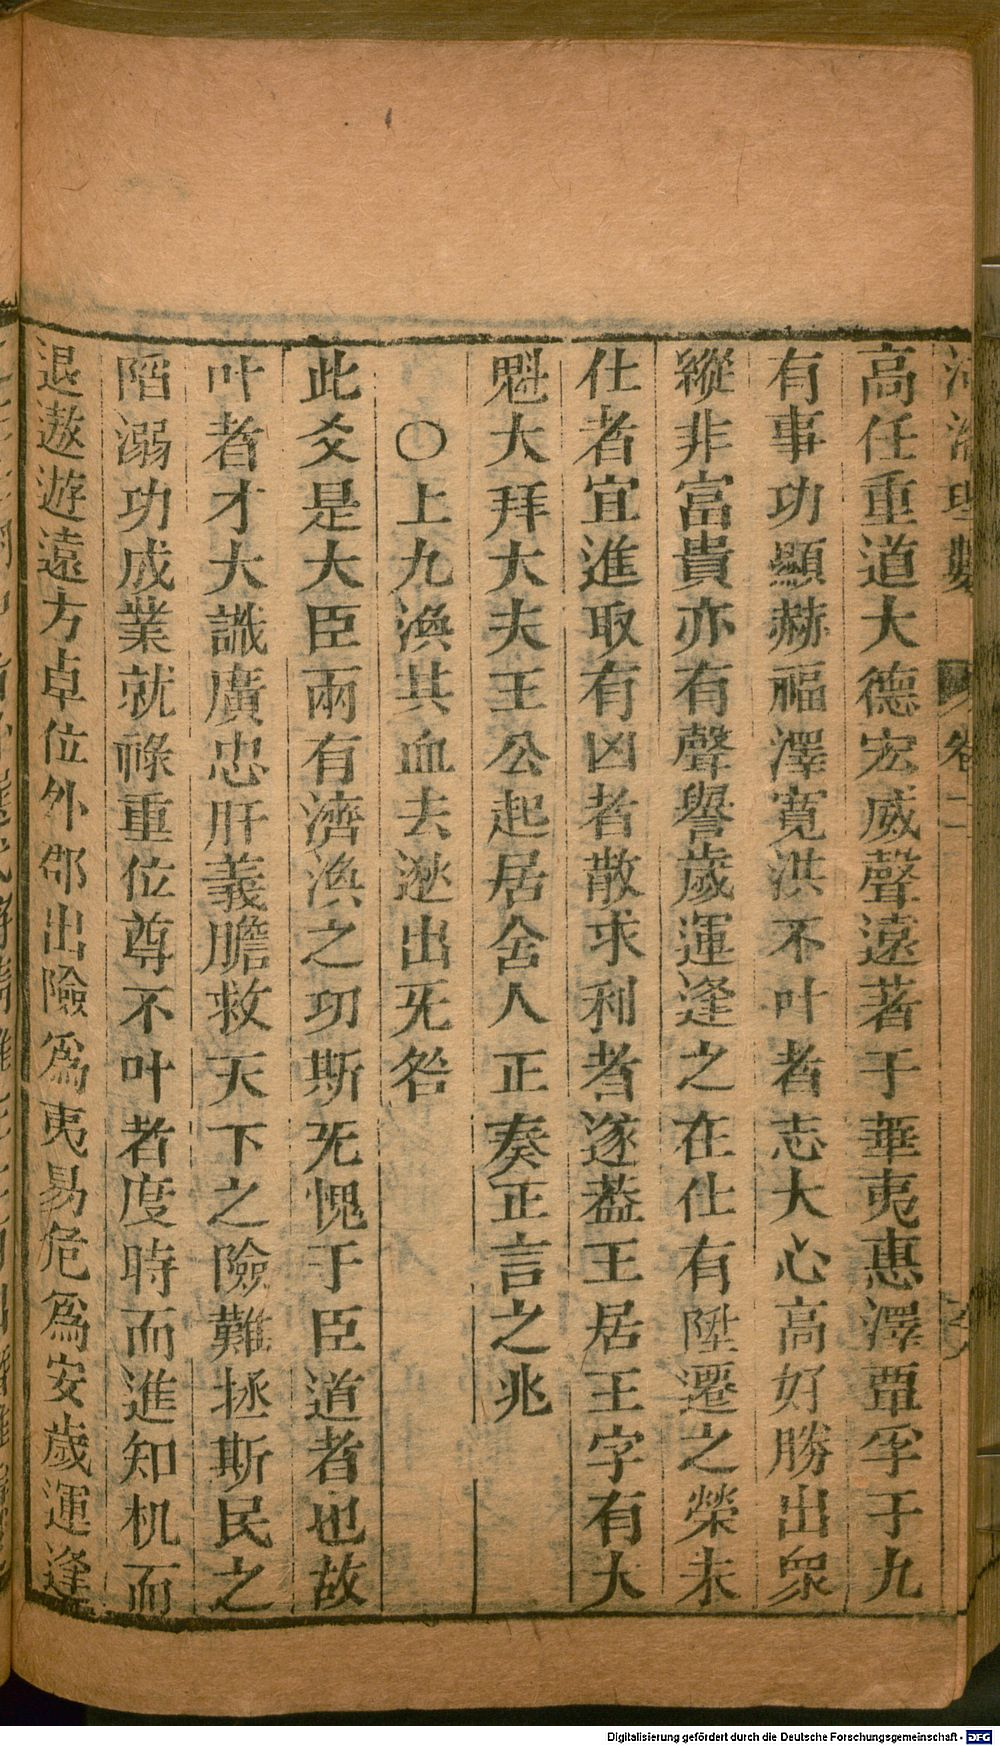 高任重道大德宏威聲遠著于華夷惠澤覃孚于九
有事功顯赫福澤寬洪不叶者志大心高好勝出衆
縱非富貴亦有聲譽歲運逢之在仕有陞遷之榮未
仕者宜進取有凶者散求利者遂葢王居王字有大
魁大拜大夫王公起居舍人正奏正言之兆
〇上九渙其血去逖出旡咎
此爻是大臣兩有濟渙之功斯旡愧于臣道者也故
叶者才大識廣忠肝義膽救天下之險難拯斯民之
陷溺功成業就祿重位尊不叶者度時而進知机而
退遨遊遠方卓位外郡出險爲夷易危爲安歲運逢
卷二
Digitalisierung gefördert durch die Deutsche Forschungsgemeinschaft - DFG